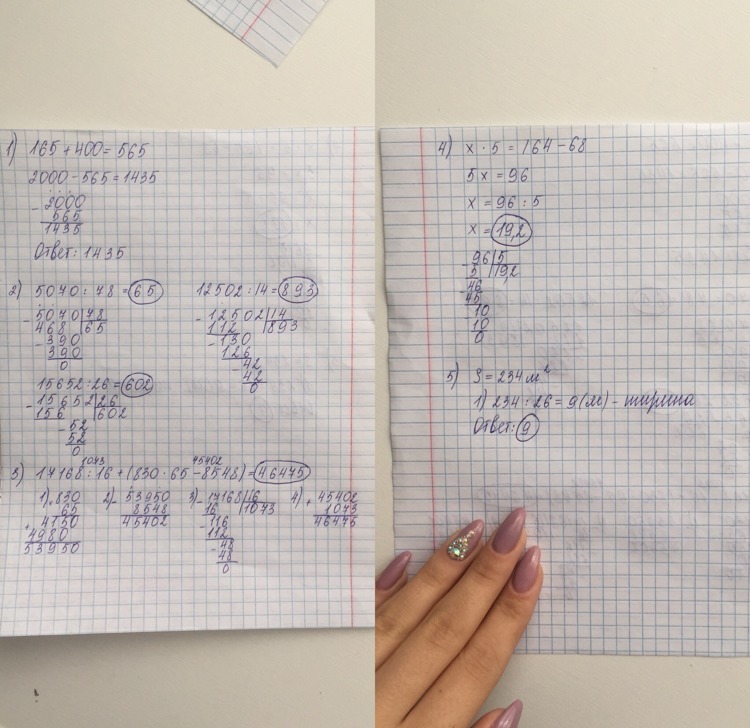 1) 165 + 400 = 565
2000 - 565 = 1435
- 2000
565
1435
Ответ: 1435
2) 5070 : 78 = 65
12502 : 14 = 893
- 5070 | 78
468 | 65
- 390
390
0
- 12502 | 14
112 | 893
- 130
126
- 42
42
0
15652 : 26 = 602
- 15652 | 26
156 | 602
- 52
52
0
1073 45402
3) 17168 : 16 + (830 · 65 - 8548) = 46475
1) × 830
65
4150
+ 4980
53950
2) - 53950
8548
45402
3) - 17168 | 16
16 | 1073
- 116
112
- 48
48
0
4) + 45402
1073
46475
4) x · 5 = 164 - 68
5x = 96
x = 96 : 5
x = 19,2
- 96 | 5
5 | 19,2
- 46
45
- 10
10
0
5) S = 234 м²
1) 234 : 26 = 9 (м) - ширина
Ответ: 9